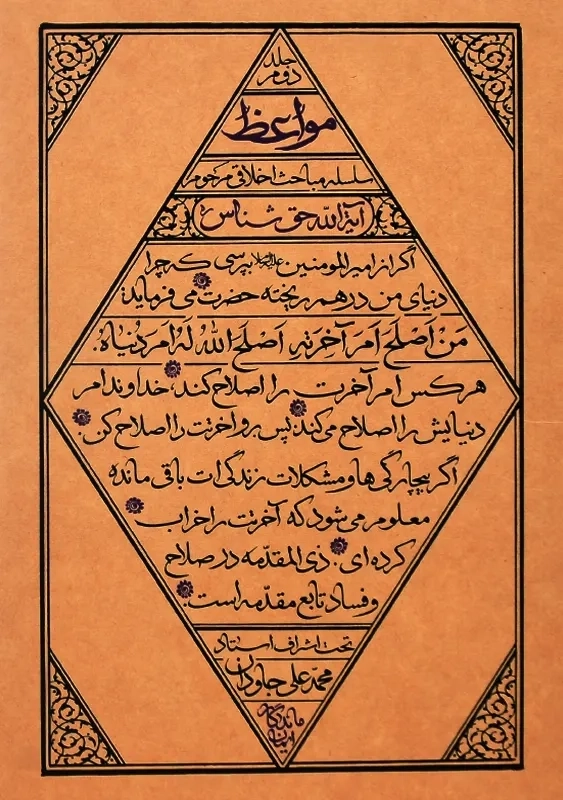 جلد
دوم
مواعظ
سلسله مباحث اخلاقی مرحوم
آیة الله حق شناس
اگر از امیرالمومنین علیه‌السلام بپرسی که چرا
دنیای من در هم ریخته حضرت می فرماید:
مَن اَصْلَحَ اَمرَ آخرَتِهِ اَصْلَحَ اللهُ لَهُ اَمرَ دُنیاهُ.
هر کس امر آخرت را اصلاح کند، خداوند امر
دنیایش را اصلاح می کند؛ پس برو آخرتت را اصلاح کن.
اگر بیچارگی ها و مشکلات زندگی ات باقی مانده
معلوم می شود که آخرتت را خراب
کرده ای. ذی المقدّمه در صلاح
و فساد تابع مقدّمه است.
تحت اشراف استاد
محمّد علی جاودان
ماندگار
ایمان